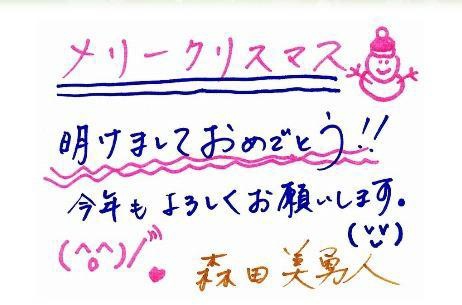 メリークリスマス
明けましておめでとう!!
今年もよろしくお願いします。
(^o^)/ (ᵕᴗᵕ)
森田美勇人